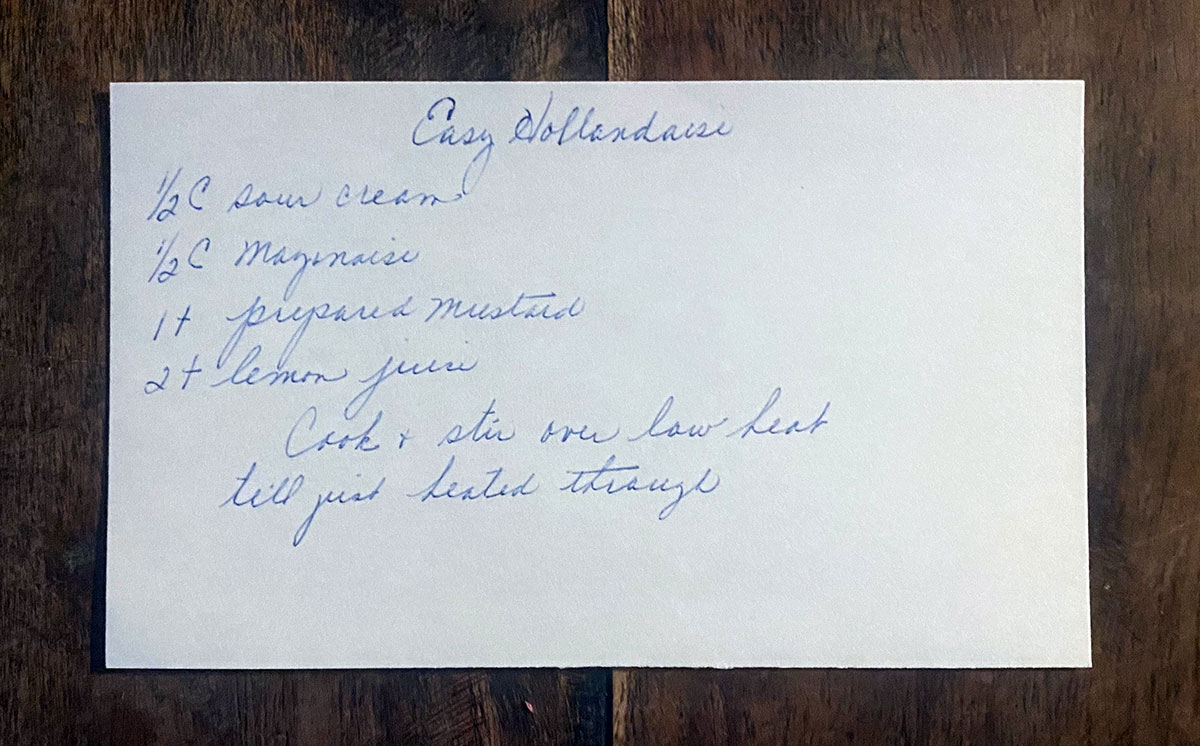 Easy Hollandaise
1/2 C sour cream
1/2 C Mayonaise
1 t prepared mustard
2 t lemon juice
Cook + stir over low heat
till just heated through